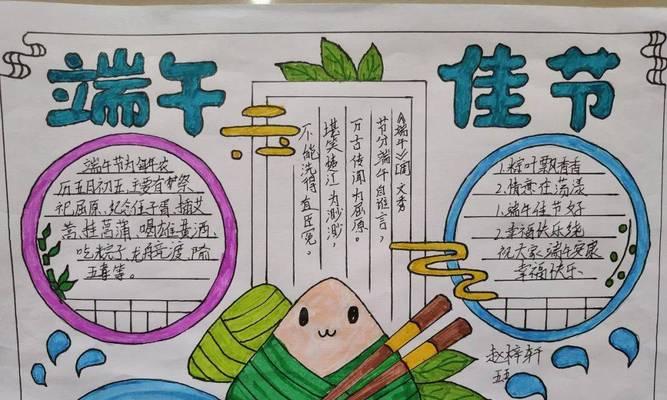 端午佳节
端午节为每年农
历五月初五,主要有祭
祀屈原、纪念伍子胥、插艾
蒿、挂菖蒲、喝雄黄酒、
吃粽子、龙舟竞渡、除
五毒等。
《端午》 唐 文秀
节分端午自谁言,
万古传闻为屈原。
堪笑楚江空渺渺,
不能洗得直臣冤。
1.粽叶飘香香
2.情意在荡漾
1.端午佳节好
2.幸福快乐绕
祝大家端午安康
幸福快乐
赵梓轩
五五